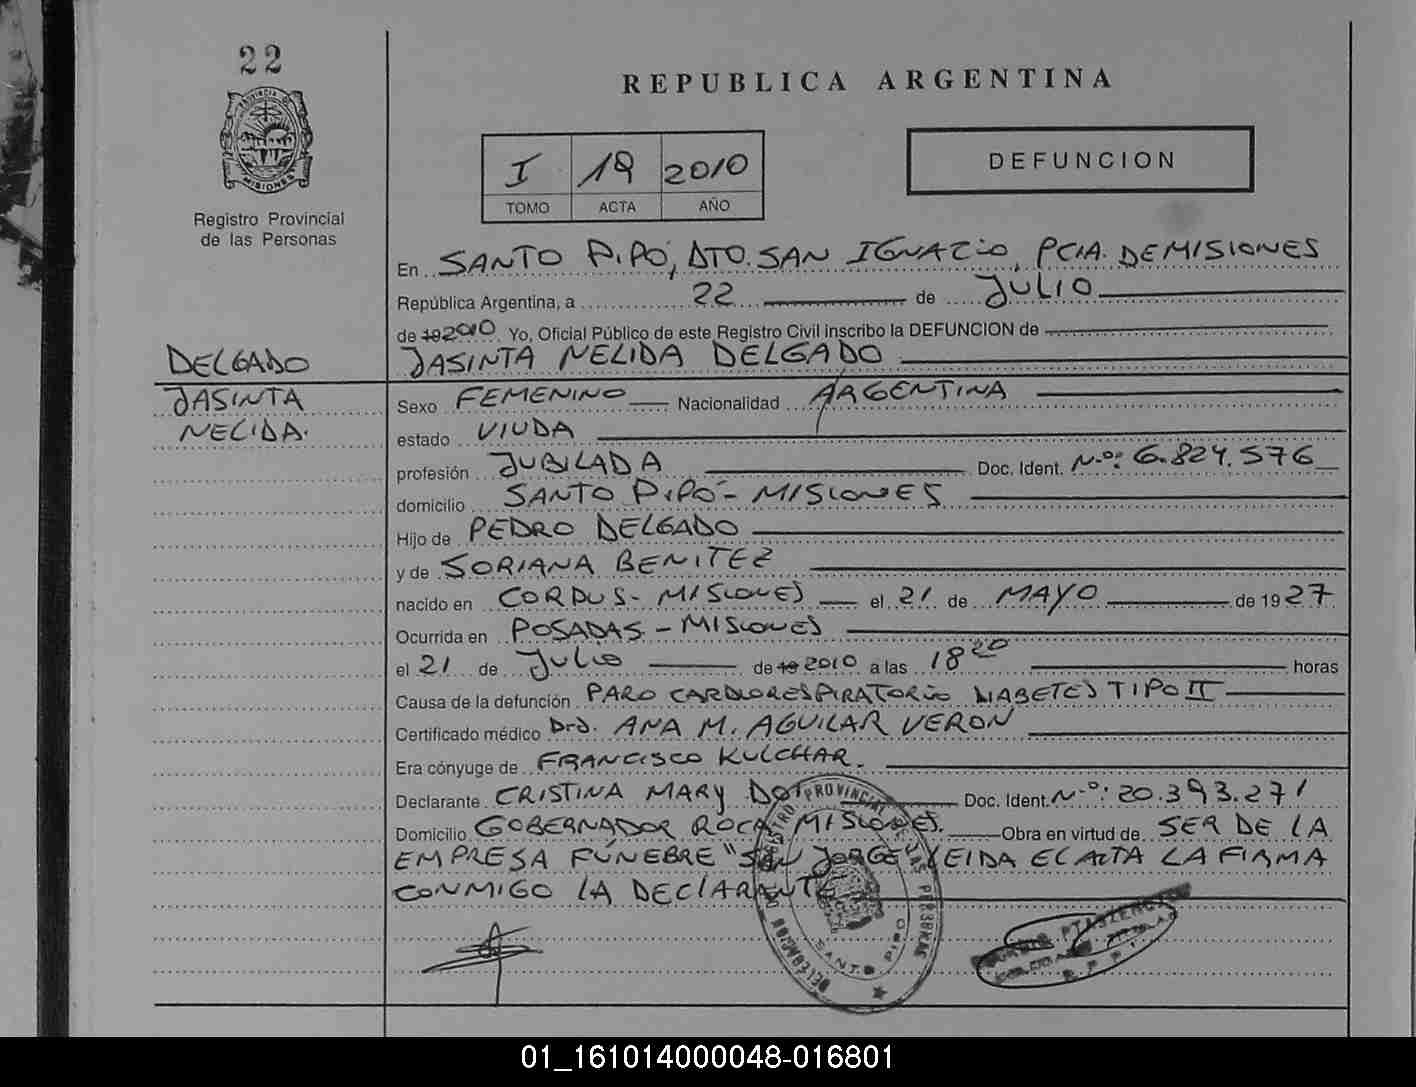 22
PROVINCIA DE
MISIONES
Registro Provincial
de las Personas
REPUBLICA ARGENTINA
I 19 2010
TOMO ACTA AÑO
DEFUNCION
En SANTO PIPÓ, DTO. SAN IGNACIO, PCIA. DE MISIONES
República Argentina, a 22 de JULIO
de 19 2010 Yo, Oficial Público de este Registro Civil inscribo la DEFUNCION de
DELGADO
JASINTA NELIDA DELGADO
JASINTA
NELIDA.
Sexo FEMENINO Nacionalidad ARGENTINA
estado VIUDA
profesión JUBILADA Doc. Ident. Nº: 6.824.576
domicilio SANTO PIPÓ - MISIONES
Hijo de PEDRO DELGADO
y de SORIANA BENITEZ
nacido en CORPUS - MISIONES el 21 de MAYO de 1927
Ocurrida en POSADAS - MISIONES
el 21 de JULIO de 19 2010 a las 18 20 horas
Causa de la defunción PARO CARDIORESPIRATORIO DIABETES TIPO II
Certificado médico Dra. ANA M. AGUILAR VERON
Era cónyuge de FRANCISCO KULCHAR.
Declarante CRISTINA MARY Doc. Ident. Nº: 20.393.271
Domicilio GOBERNADOR ROCA MISIONES. Obra en virtud de SER DE LA
EMPRESA FÚNEBRE "SAN JORGE LEIDA EL ACTA LA FIRMA
CONMIGO LA DECLARANTE
DELEGACION DEL REGISTRO PROVINCIAL DE LAS PERSONAS
SANTO PIPO
01_161014000048-016801